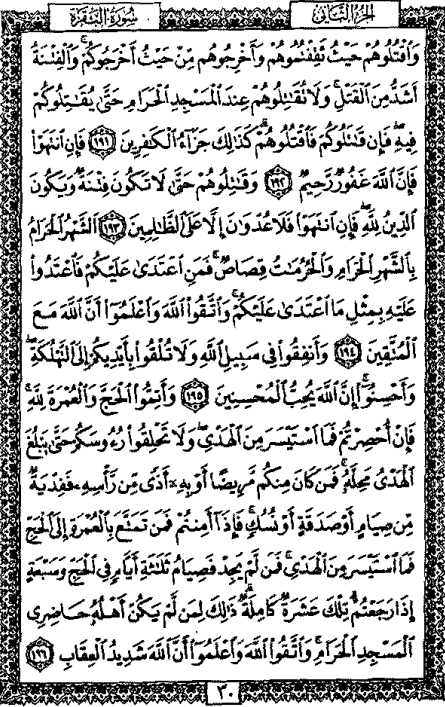 الجزء الثاني
سورة البقرة
وَاقْتُلُوهُمْ حَيْثُ ثَقِفْتُمُوهُمْ وَأَخْرِجُوهُم مِّنْ حَيْثُ أَخْرَجُوكُمْ ۚ وَالْفِتْنَةُ
أَشَدُّ مِنَ الْقَتْلِ ۚ وَلَا تُقَاتِلُوهُمْ عِندَ الْمَسْجِدِ الْحَرَامِ حَتَّىٰ يُقَاتِلُوكُمْ
فِيهِ ۖ فَإِن قَاتَلُوكُمْ فَاقْتُلُوهُمْ ۗ كَذَٰلِكَ جَزَاءُ الْكَافِرِينَ ﴿١٩١﴾ فَإِنِ انتَهَوْا
فَإِنَّ اللَّهَ غَفُورٌ رَّحِيمٌ ﴿١٩٢﴾ وَقَاتِلُوهُمْ حَتَّىٰ لَا تَكُونَ فِتْنَةٌ وَيَكُونَ
الدِّينُ لِلَّهِ ۖ فَإِنِ انتَهَوْا فَلَا عُدْوَانَ إِلَّا عَلَى الظَّالِمِينَ ﴿١٩٣﴾ الشَّهْرُ الْحَرَامُ
بِالشَّهْرِ الْحَرَامِ وَالْحُرُمَاتُ قِصَاصٌ ۚ فَمَنِ اعْتَدَىٰ عَلَيْكُمْ فَاعْتَدُوا
عَلَيْهِ بِمِثْلِ مَا اعْتَدَىٰ عَلَيْكُمْ ۚ وَاتَّقُوا اللَّهَ وَاعْلَمُوا أَنَّ اللَّهَ مَعَ
الْمُتَّقِينَ ﴿١٩٤﴾ وَأَنفِقُوا فِي سَبِيلِ اللَّهِ وَلَا تُلْقُوا بِأَيْدِيكُمْ إِلَى التَّهْلُكَةِ ۛ
وَأَحْسِنُوا ۛ إِنَّ اللَّهَ يُحِبُّ الْمُحْسِنِينَ ﴿١٩٥﴾ وَأَتِمُّوا الْحَجَّ وَالْعُمْرَةَ لِلَّهِ ۚ
فَإِنْ أُحْصِرْتُمْ فَمَا اسْتَيْسَرَ مِنَ الْهَدْيِ ۖ وَلَا تَحْلِقُوا رُءُوسَكُمْ حَتَّىٰ يَبْلُغَ
الْهَدْيُ مَحِلَّهُ ۚ فَمَن كَانَ مِنكُم مَّرِيضًا أَوْ بِهِ أَذًى مِّن رَّأْسِهِ فَفِدْيَةٌ
مِّن صِيَامٍ أَوْ صَدَقَةٍ أَوْ نُسُكٍ ۚ فَإِذَا أَمِنتُمْ فَمَن تَمَتَّعَ بِالْعُمْرَةِ إِلَى الْحَجِّ
فَمَا اسْتَيْسَرَ مِنَ الْهَدْيِ ۚ فَمَن لَّمْ يَجِدْ فَصِيَامُ ثَلَاثَةِ أَيَّامٍ فِي الْحَجِّ وَسَبْعَةٍ
إِذَا رَجَعْتُمْ ۗ تِلْكَ عَشَرَةٌ كَامِلَةٌ ۗ ذَٰلِكَ لِمَن لَّمْ يَكُنْ أَهْلُهُ حَاضِرِي
الْمَسْجِدِ الْحَرَامِ ۚ وَاتَّقُوا اللَّهَ وَاعْلَمُوا أَنَّ اللَّهَ شَدِيدُ الْعِقَابِ ﴿١٩٦﴾
٣٠